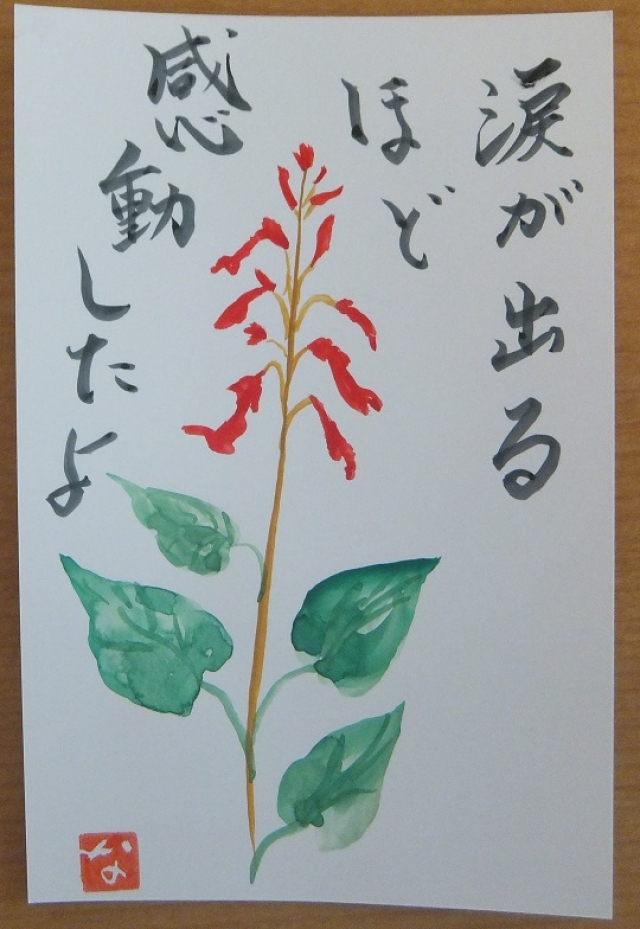 涙が出る
ほど
感動
したよ
な